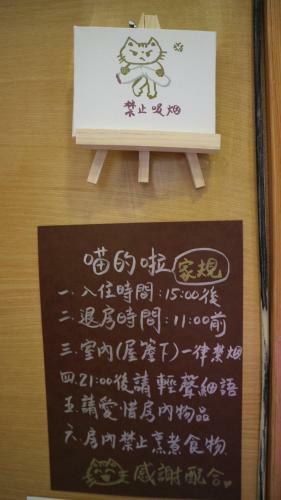 禁止吸烟
喵的啦 家規
一.入住時間:15:00後
二.退房時間:11:00前
三.室內(屋簷下)一律禁烟
四.21:00後請輕聲細語
五.請愛惜房內物品
六.房內禁止烹煮食物
感謝配合